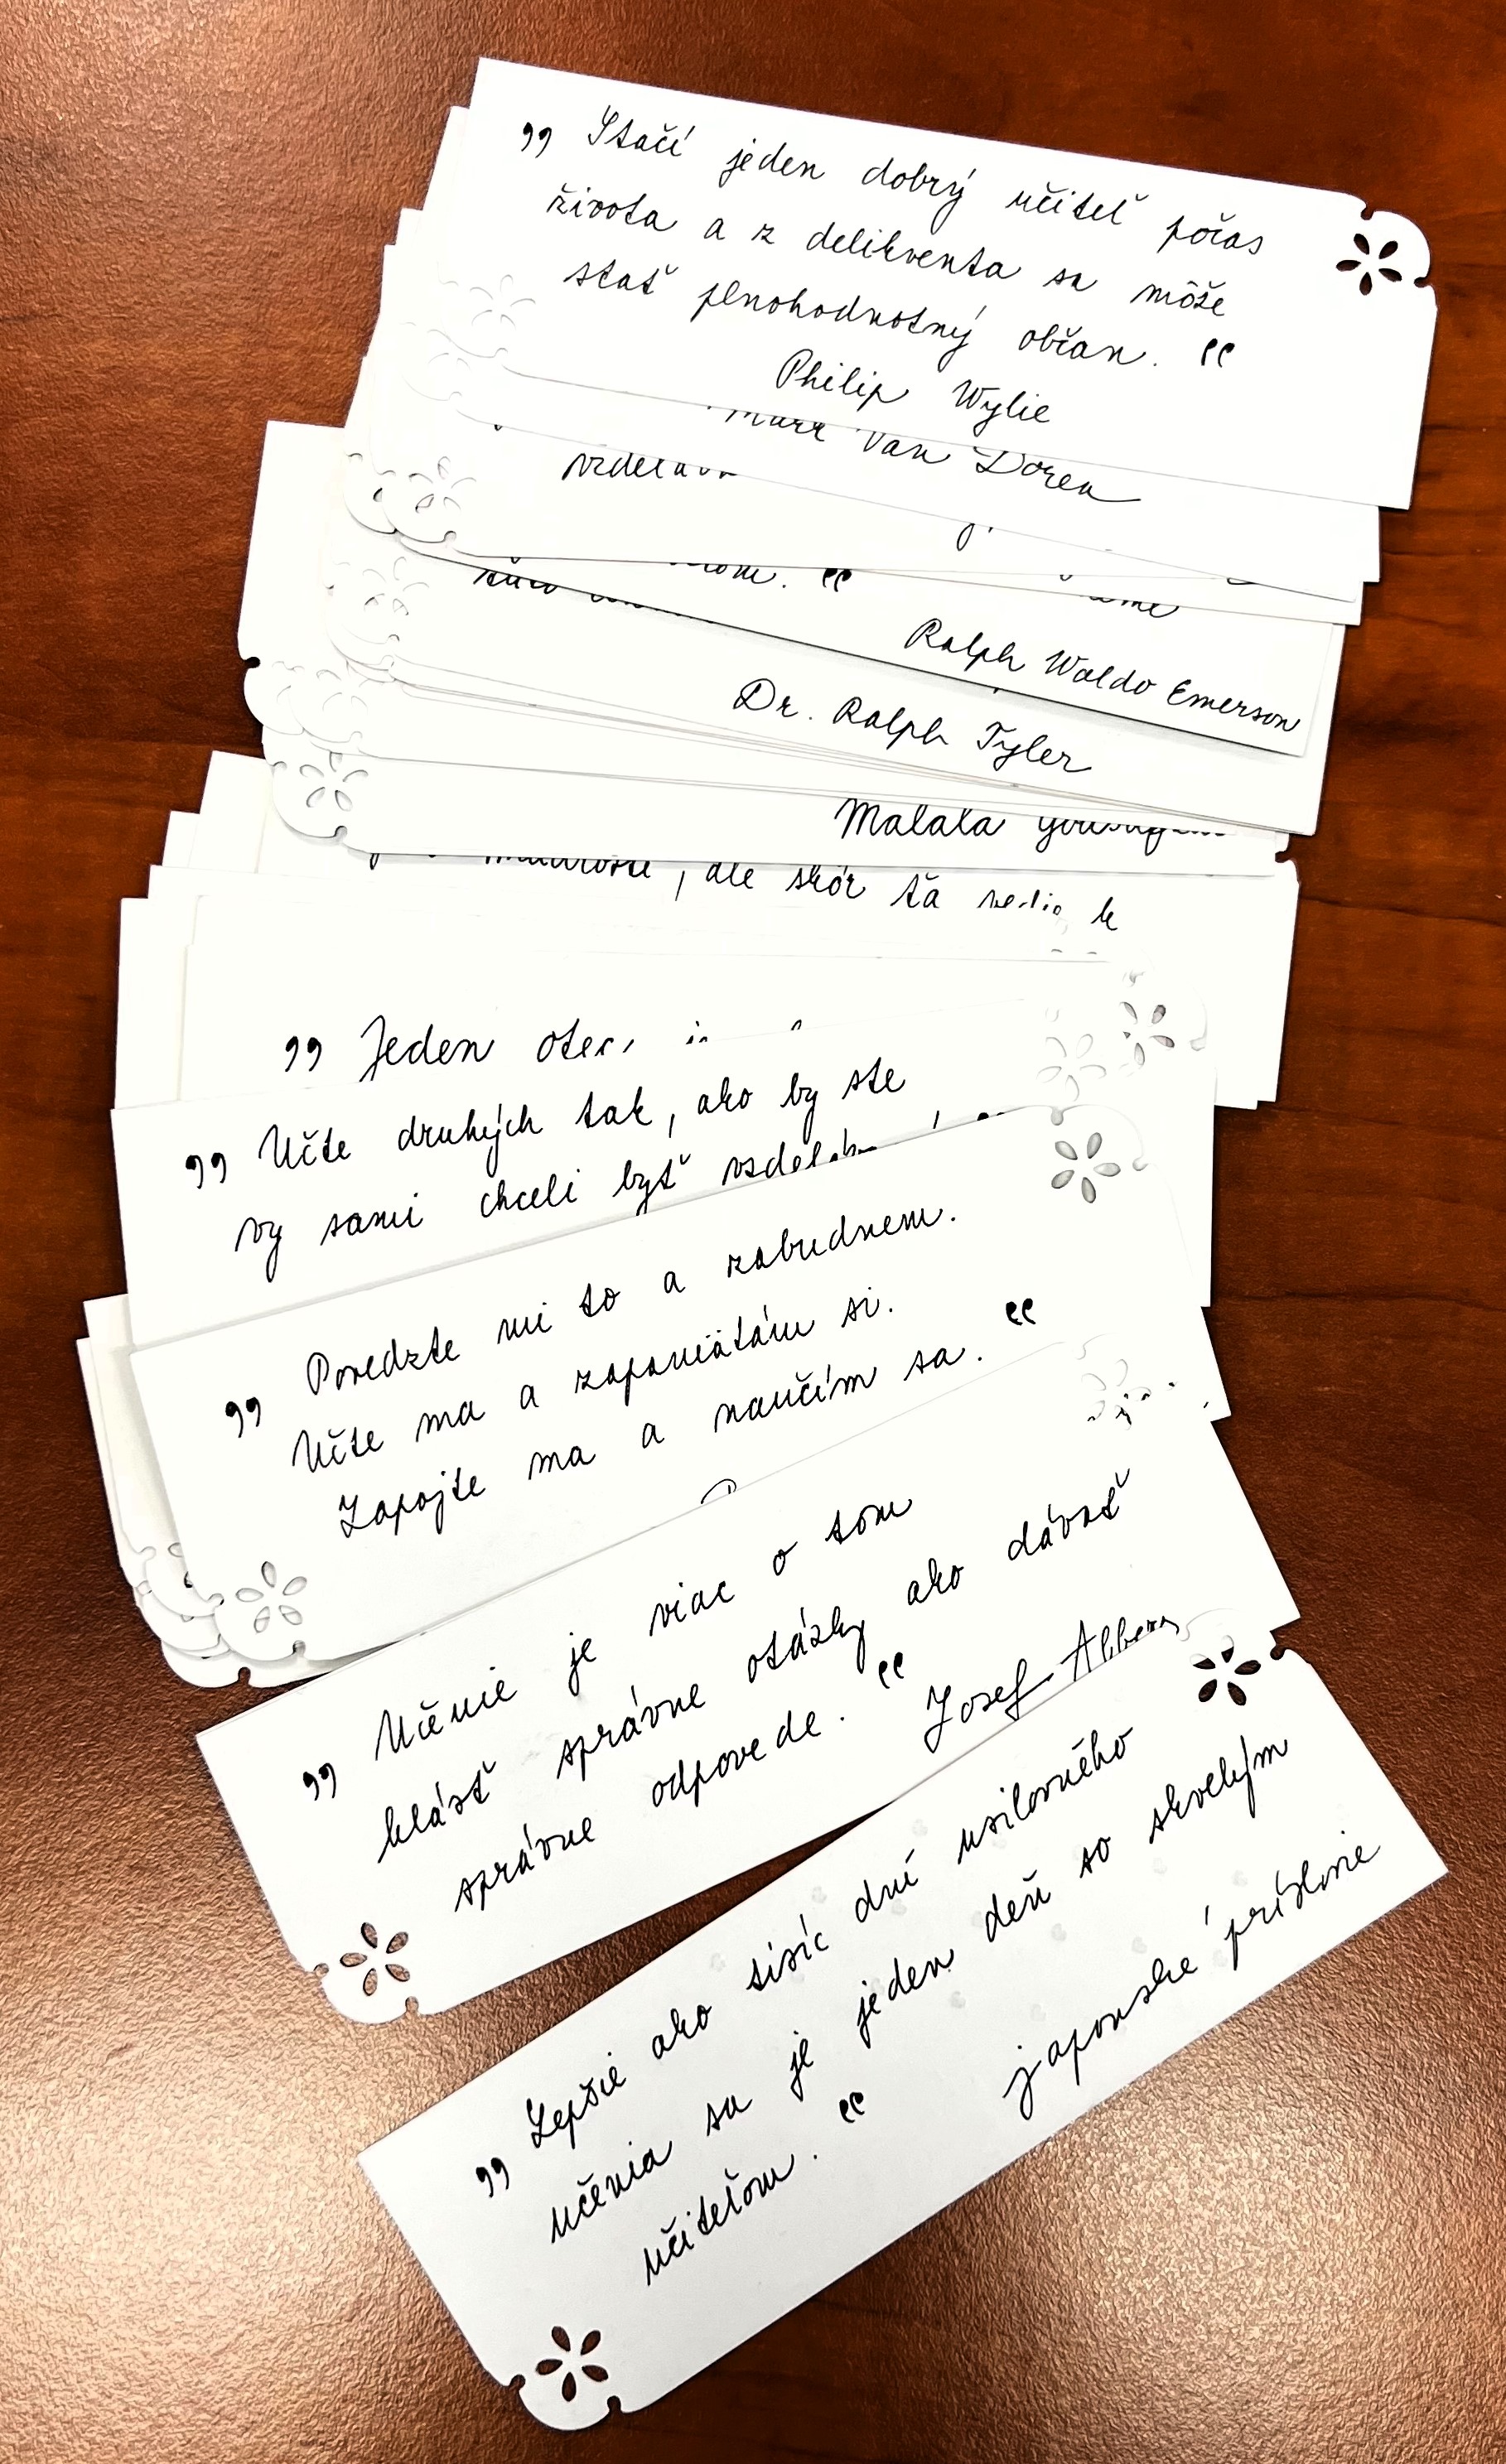 „ Stačí jeden dobrý učiteľ počas
života a z delikventa sa môže
stať plnohodnotný občan. “
Philip Wylie
Mark Van Doren
Ralph Waldo Emerson
Dr. Ralph Tyler
Malala
, ale skôr ťa k
„ Jeden otec
„ Učte druhých tak, ako by ste
vy sami chceli byť
„ Povedzte mi to a zabudnem.
Učte ma a zapamätám si.
Zapojte ma a naučím sa. “
„ Učenie je viac o tom
klásť správne otázky ako dávať
správne odpovede. “ Josef Albers
„ Lepšie ako tisíc dní usilovného
učenia sa je jeden deň so skvelým
učiteľom. “ japonské príslovie